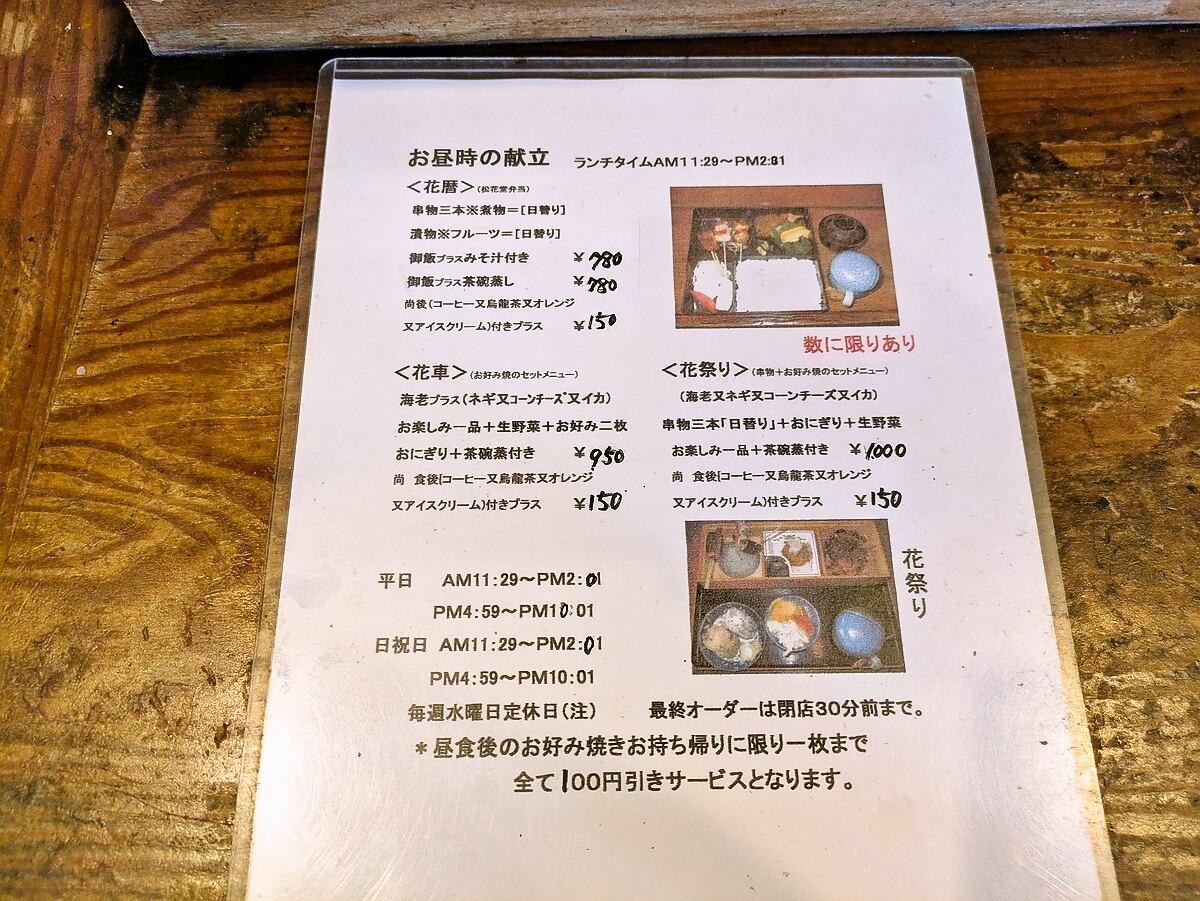 お昼時の献立 ランチタイムAM11:29～PM2:01
＜花暦＞(松花堂弁当)
串物三本※煮物＝[日替り]
漬物※フルーツ＝[日替り]
御飯プラスみそ汁付き ￥780
御飯プラス茶碗蒸し ￥780
尚後(コーヒー又烏龍茶又オレンジ
又アイスクリーム)付きプラス ￥150
数に限りあり
＜花車＞(お好み焼のセットメニュー)
海老プラス(ネギ又コーンチーズ又イカ)
お楽しみ一品＋生野菜＋お好み二枚
おにぎり＋茶碗蒸付き ￥950
尚 食後[コーヒー又烏龍茶又オレンジ
又アイスクリーム)付きプラス ￥150
＜花祭り＞(串物＋お好み焼のセットメニュー)
(海老又ネギ又コーンチーズ又イカ)
串物三本「日替り」＋おにぎり＋生野菜
お楽しみ一品＋茶碗蒸付き ￥1000
尚 食後[コーヒー又烏龍茶又オレンジ
又アイスクリーム)付きプラス ￥150
花祭り
平日 AM11:29～PM2:01
PM4:59～PM10:01
日祝日 AM11:29～PM2:01
PM4:59～PM10:01
毎週水曜日定休日(注) 最終オーダーは閉店30分前まで。
＊昼食後のお好み焼きお持ち帰りに限り一枚まで
全て100円引きサービスとなります。